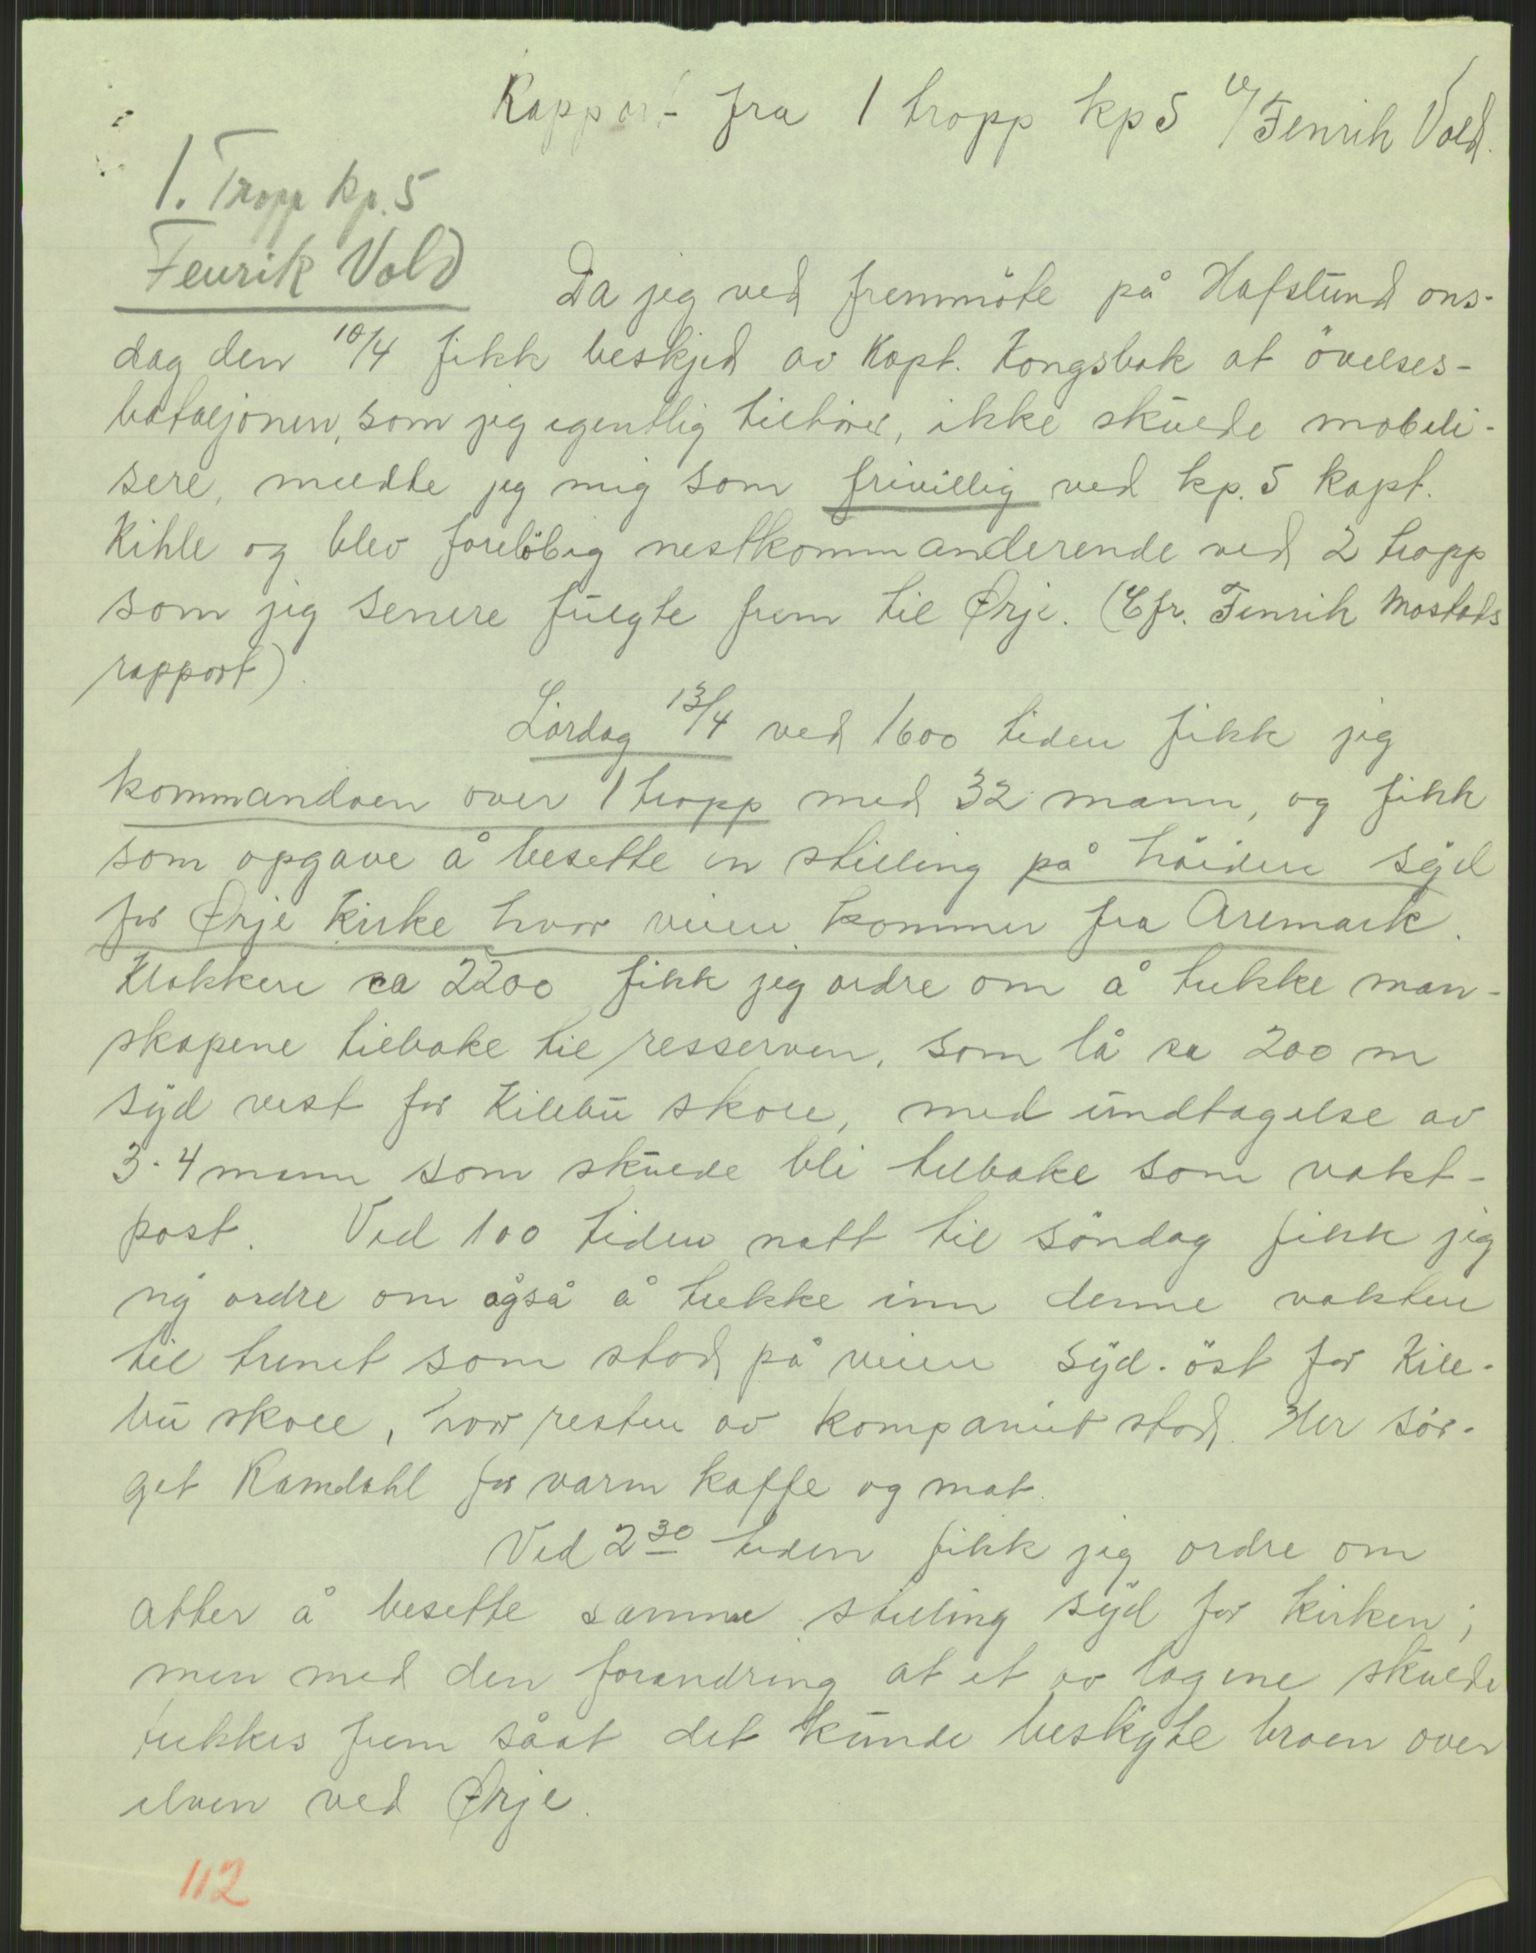 Rapport fra 1 tropp kp 5 v/ Fenrik Vold.
1. Tropp Kp. 5
Fenrik Vold
Da jeg ved fremmöte på Hafslund ons-
dag den 10/4 fikk beskjed av Kapt. Kongsbak at övelses-
bataljonen, som jeg egentlig tilhörer, ikke skulde mobili-
sere, meldte jeg mig som frivillig ved kp. 5 Kapt.
Kihle og blev forelöbig nestkommanderende ved 2 tropp
som jeg senere fulgte frem til Ørje. (Cfr. Fenrik Mostads
rapport).
Lördag 13/4 ved 1600 tiden fikk jeg
kommandoen over 1 tropp med 32 mann, og fikk
som opgave å besette en stilling på höiden syd
for Ørje Kirke hvor veien kommer fra Aremark.
Klokken ca 2200 fikk jeg ordre om å trekke man-
skapene tilbake til resserven, som lå ca 200 m
syd vest for Kilebu skole, med undtagelse av
3-4 mann som skulde bli tilbake som vakt-
post. Ved 100 tiden natt til söndag fikk jeg
ny ordre om også å trekke inn denne vakten
til trenet som stod på veien syd-öst for Kile-
bu skole, hvor resten av kompaniet stod. Her sör-
get Ramdahl for varm kaffe og mat.
Ved 2 30 tiden fikk jeg ordre om
atter å besette samme stilling syd for Kirken;
men med den forandring at et av lagene skulde
trekkes frem såat det kunde beskyte broen over
elven ved Ørje.
112